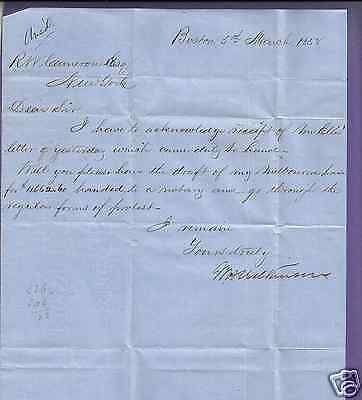 Boston 5th March 1858
R W Cameron Esq
New York
Dear Sir
I have to acknowledge receipt of
letter of yesterday which came duly to hand.
Will you please have the draft of my Melbourne
for handed to a notary and go through the
regular forms of protest.
I remain
Yours truly